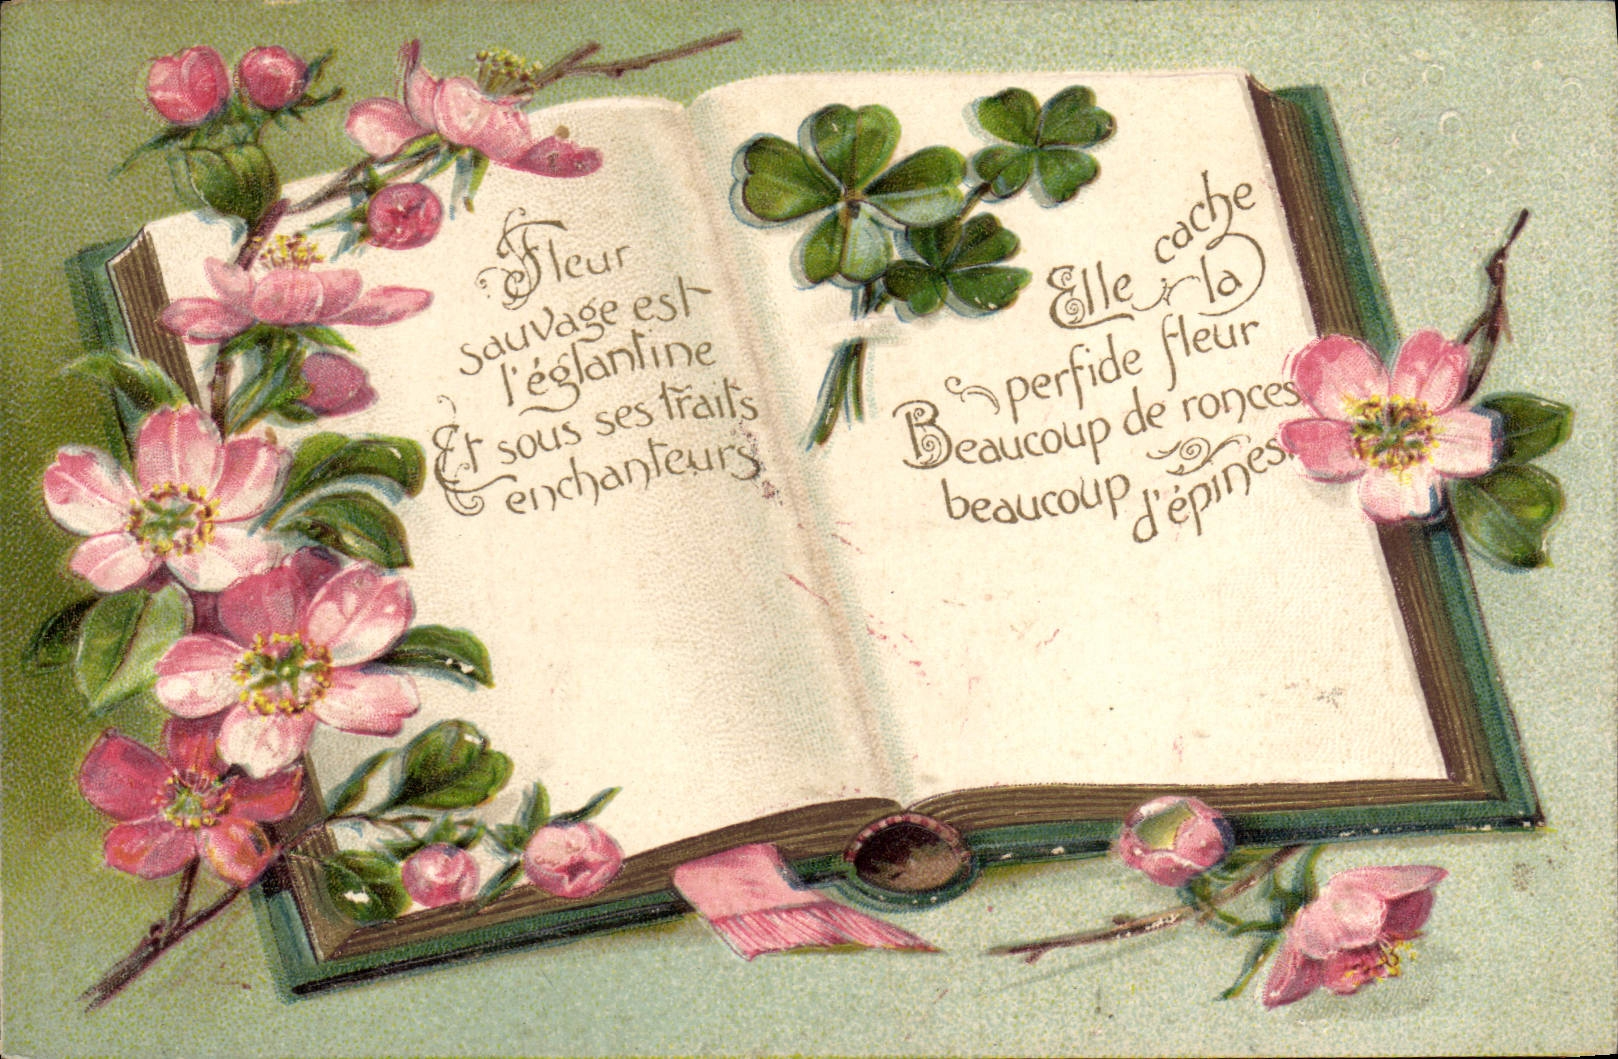 Fleur
sauvage est
l'églantine
Et sous ses traits
enchanteurs
Elle cache
la
perfide fleur
Beaucoup de ronces
beaucoup d'épines.